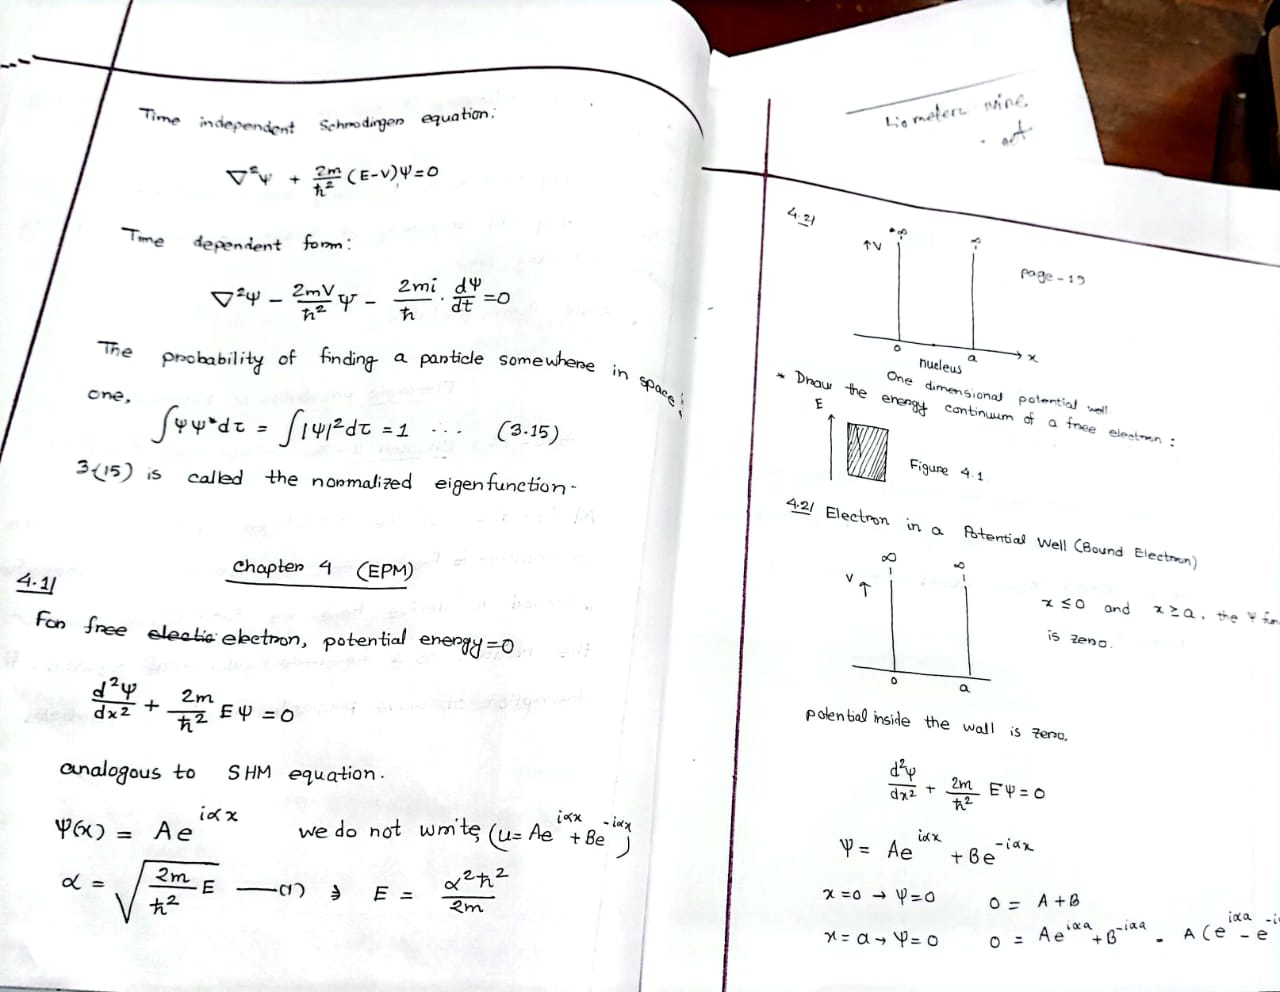 Time independent Schrodinger equation:
∇²ψ + 2m/ħ² (E-V)ψ=0
Time dependent form:
∇²ψ - 2mV/ħ² ψ - 2mi/ħ . dψ/dt =0
The probability of finding a particle somewhere in space;
one,
∫ψψ*dτ = ∫|ψ|²dτ = 1 ... (3.15)
3(15) is called the normalized eigenfunction-
chapter 4 (EPM)
4.1/
For free electron, potential energy=0
d²ψ/dx² + 2m/ħ² Eψ = 0
analogous to SHM equation.
ψ(x) = Ae^iαx we do not write, (u= Ae^iαx + Be^-iαx)
α = √(2m/ħ² E) —(1) ; E = α²ħ²/2m
Liometer wire
. act
4.2/
∞ ∞
↑V
page-19
0 a x
nucleus
One dimensional potential well
* Draw the energy continuum of a free electron :
E
Figure 4.1
4.2/ Electron in a Potential Well (Bound Electron)
∞ ∞
V ↑
x ≤0 and x ≥a, the ψ fun
is zero.
0 a
potential inside the wall is zero.
d²ψ/dx² + 2m/ħ² Eψ = 0
ψ = Ae^iαx + Be^-iαx
x=0 → ψ=0 0 = A+B
x=a → ψ=0 0 = Ae^iαa + B^-iαa = A(e^iαa - e^-i